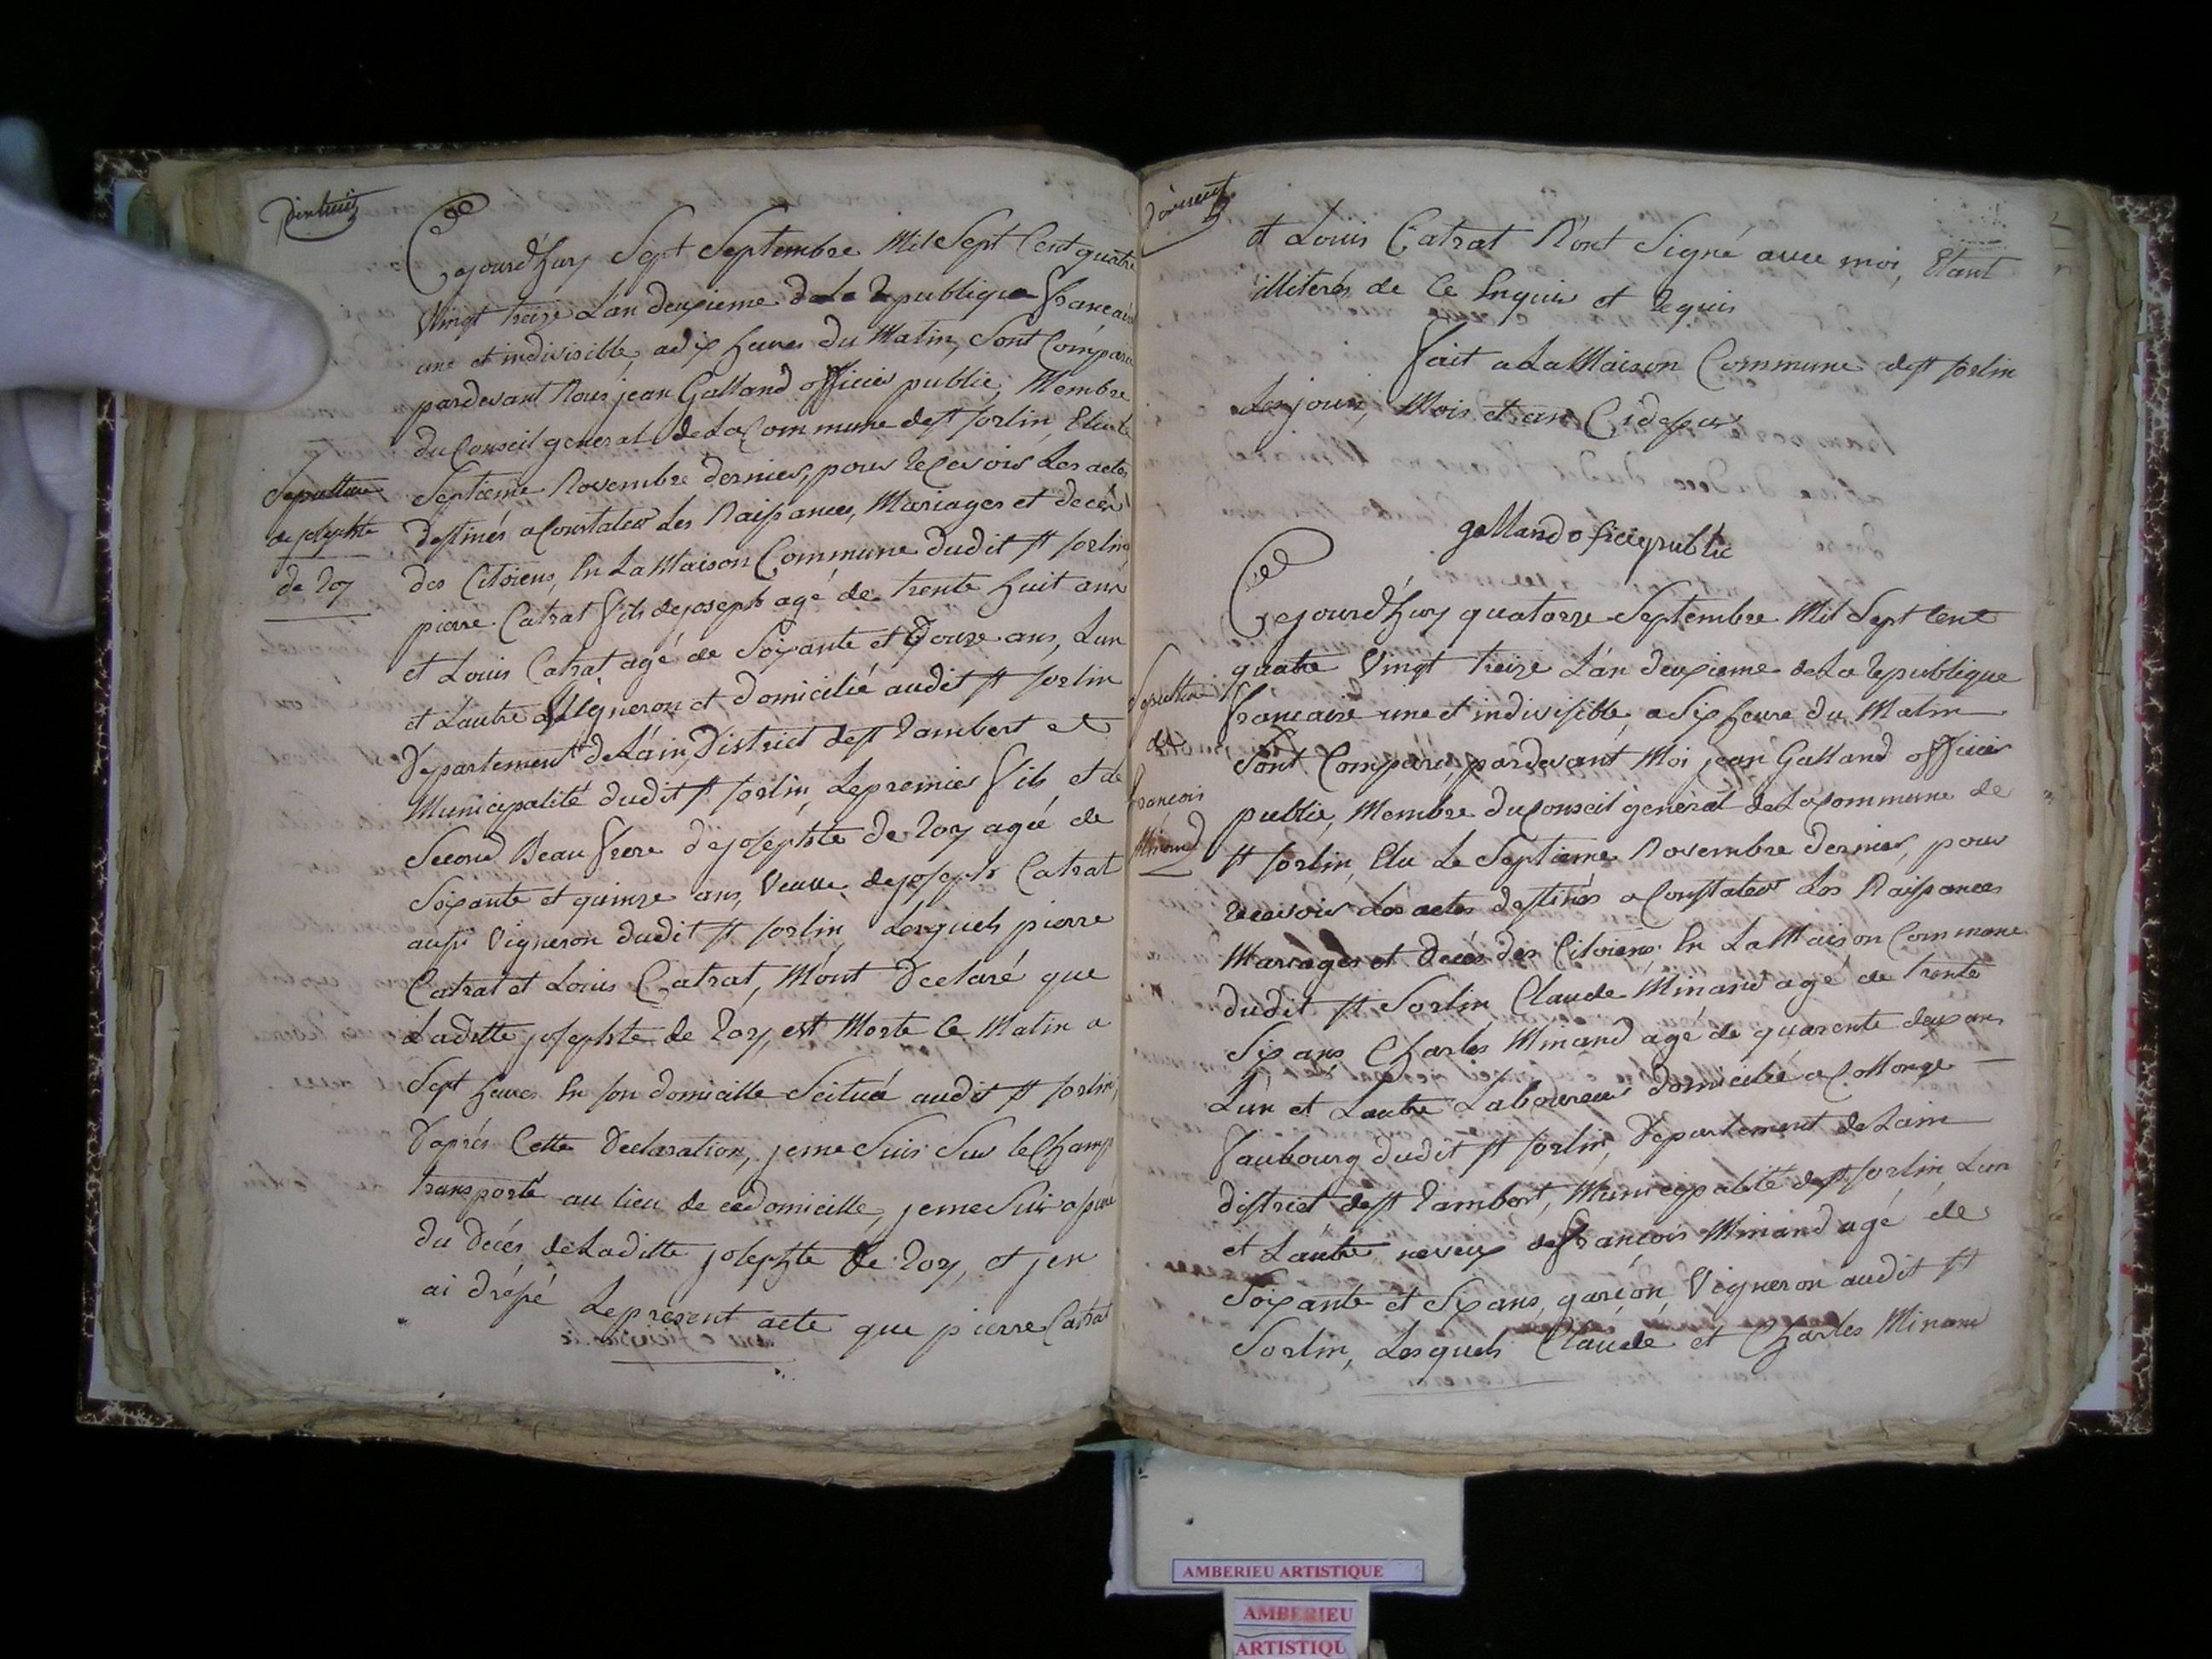 dixhuit
Cejourd'huy Sept Septembre Mil Sept Cent quatre
Vingt treize L'an deuxieme de La Republique francaise
une et indivisible, a dix heures du Matin, Sont Comparu
pardevant Nous jean Galland officier public, Membre
du Conseil general de La Commune de st Sorlin, Elu le
Septieme Novembre dernier, pour recevoir Les actes
destinés a Constater Les Naissances, Mariages et decés
des Citoiens, En La Maison Commune dudit st Sorlin,
pierre Catrat fils de joseph agé de trente huit ans
et Louis Catrat agé de Soixante et Douze ans, Lun
et Lautre Vigneron et domicilié audit st Sorlin
Departement de Lain, District de st Rambert et
Municipalité dudit st Sorlin, Le premier fils et le
Second Beau frere de josephte de Roy agée de
Soixante et quinze ans, Veuve de joseph Catrat
aussi Vigneron dudit st Sorlin, Lesquels pierre
Catrat et Louis Catrat, M'ont Declaré que
Laditte josephte de Roy, est Morte Ce Matin a
Sept heures En son domicille Scitué audit st Sorlin,
D'aprés Cette Declaration, je me Suis Sur le Champ
transporté au lieu de ce domicille, je me Suis assuré
du Decés de Laditte josephte De Roy, et j'en
ai dressé Le present acte que pierre Catrat
Sepulture
de josephte
de Roy
et Louis Catrat N'ont Signé avec moi, Etant
illiterés de Ce Enquis et Requis
fait a La Maison Commune de st Sorlin
Les jour, Mois et an Cidessus
galland officier public
Cejourd'huy quatorze Septembre Mil Sept Cent
quatre Vingt treize L'an deuxieme de La Republique
francaise une et indivisible, a Six heure du Matin
Sont Comparu, pardevant Moi jean Galland officier
public, Membre du Conseil general de La Commune de
st Sorlin, Elu Le Septieme Novembre dernier, pour
recevoir Les actes destinés a Constater Les Naissances
Mariages et Decés des Citoiens, En La Maison Commune
dudit st Sorlin Claude Minand agé de trente
Six ans Charles Minand agé de quarente deux ans
L'un et Lautre Laboureur domicilié a Collonge
Faubourg dudit st Sorlin, Departement de Lain
district de st Rambert, Municipalité de st Sorlin, Lun
et Lautre neveux de francois Minand agé de
Soixante et Six ans, garcon, Vigneron audit st
Sorlin, Lesquels Claude et Charles Minand
Sepulture
de
francois
Minand
AMBERIEU ARTISTIQUE
AMBERIEU
ARTISTIQU